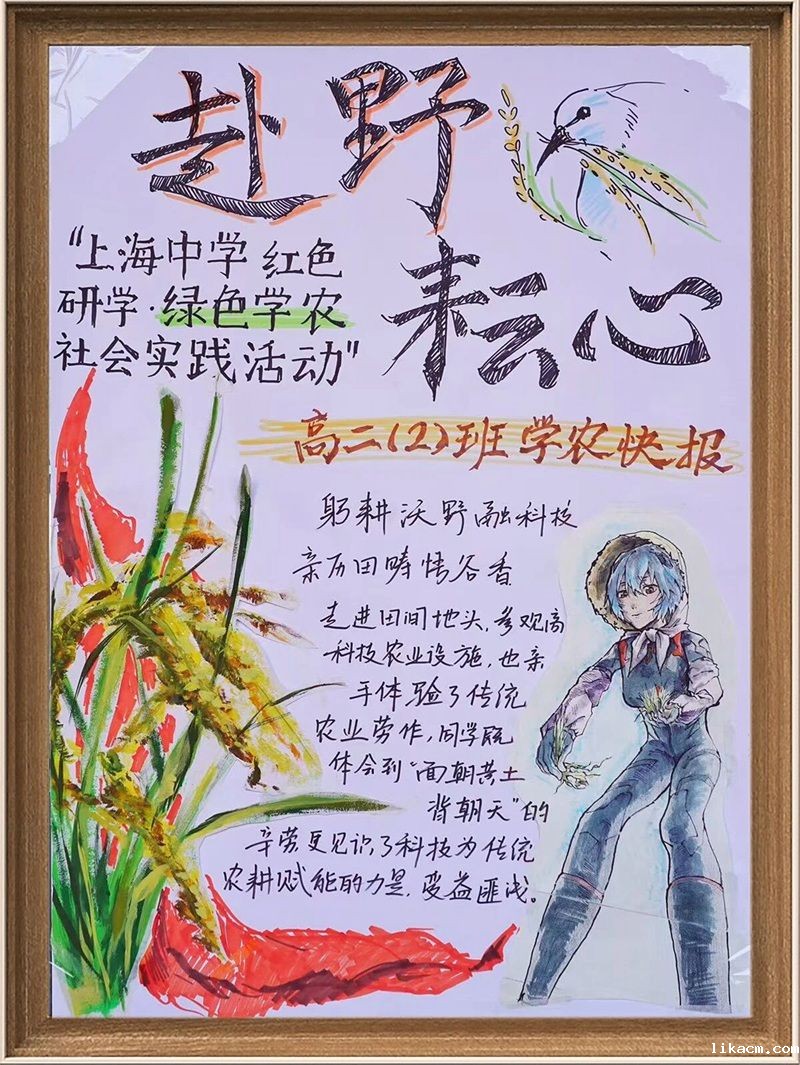 赴野
耘心
“上海中学 红色
研学·绿色学农
社会实践活动”
高二(2)班学农快报
躬耕沃野融科技
亲历田畴悟谷香
走进田间地头,参观高
科技农业设施,也亲
手体验了传统
农业劳作,同学既
体会到“面朝黄土
背朝天”的
辛劳更见识了科技为传统
农耕赋能的力量,受益匪浅。
likacm.com